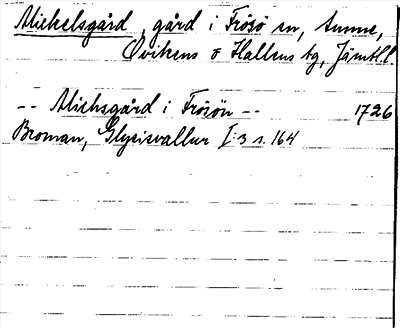 Mickelsgård, gård i Frösö sn, Sunne,
Ovikens o Hallens tg, Jämtl. l.
-- Michsgård i Frösön --   1726
Broman, Glysisvallur I:3 s. 164